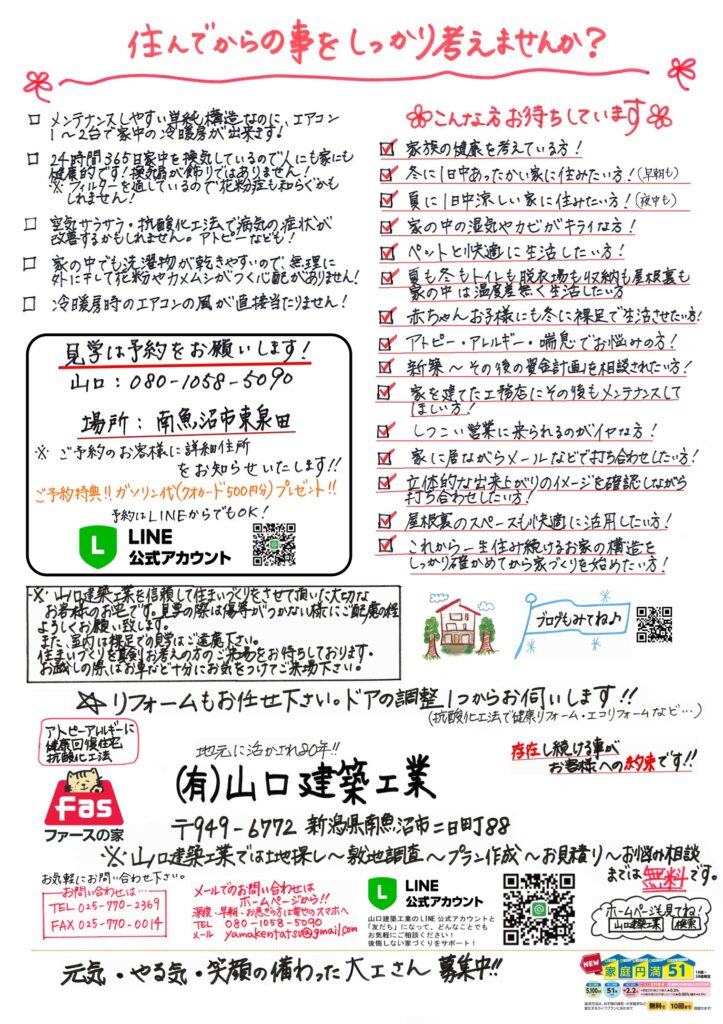 住んでからの事をしっかり考えませんか?
□ メンテナンスしやすい単純構造なのに、エアコン
1〜2台で家中の冷暖房が出来ます!
□ 24時間365日家中を換気しているので人にも家にも
健康的です!換気扇が飾りではありません!
※フィルターを通しているので花粉症も知らぐかも
しれません!
□ 空気サラサラ・抗酸化工法で病気の症状が
改善するかもしれません。アトピーなども!
□ 家の中でも洗濯物が乾きやすいので、無理に
外に干して花粉やカメムシがつく心配がありません!
□ 冷暖房時のエアコンの風が直接当たりません!
見学は予約をお願いします!
山口:080-1058-5090
場所:南魚沼市東泉田
※ご予約のお客様に詳細住所
をお知らせいたします!!
ご予約特典!!ガソリン代(クオカード500円分)プレゼント!!
予約はLINEからでもOK!
LINE
公式アカウント
※山口建築工業を信頼して住まいづくりをさせて頂いた大切な
お客様のお宅です。見学の際は傷等がつかない様にご配慮の程
ようしくお願い致します。
また、室内は裸足での見学はご遠慮下さい。
住まいづくりを真剣にお考えの方のご来場をお待ちしております。
お越しの際はお車など十分にお気をつけてご来場下さい。
こんな方お待ちしています
家族の健康を考えている方!
冬に1日中あったかい家に住みたい方!(早朝も)
夏に1日中涼しい家に住みたい方!(夜中も)
家の中の湿気やカビがキライな方!
ペットと快適に生活したい方!
夏も冬もトイレも脱衣場も収納も屋根裏も
家の中は温度差無く生活したい方
赤ちゃんお子様にも冬に裸足で生活させたい方!
アトピー・アレルギー・喘息でお悩みの方!
新築〜その後の資金計画を相談されたい方!
家を建てた工務店にその後もメンテナンスして
ほしい方!
しつこい営業に来られるのがイヤな方!
家に居ながらメールなどで打ち合わせしたい方!
立体的な出来上がりのイメージを確認しながら
打ち合わせしたい方!
屋根裏のスペースも快適に活用したい方!
これから一生住み続けるお家の構造を
しっかり確かめてから家づくりを始めたい方!
ブログもみてね♪
☆リフォームもお任せ下さい。ドアの調整1つからお伺いします!!
(抗酸化工法で健康リフォーム・エコリフォームなど…)
アトピーアレルギーに
健康回復住宅
抗酸化工法
fas
ファースの家
地元に活かされ20年!!
(有)山口建築工業
存在し続ける事が
お客様への約束です!!
〒949-6772 新潟県南魚沼市二日町88
※山口建築工業では土地探し〜敷地調査〜プラン作成〜お見積り〜お悩み相談
までは無料です。
お気軽にお問い合わせ下さい。
お問い合わせは…
TEL 025-770-2369
FAX 025-770-0014
メールでのお問い合わせは
ホームページから!
深夜・早朝・お急ぎ方は専せのスマホへ
TEL 080-1058-5090
メール yamakentatsu@gmail.com
LINE
公式アカウント
山口建築工業のLINE公式アカウントと
「友だち」になって、どんなことでも
お気軽にご相談ください!
後悔しない家づくりをサポート!
ホームページも見てね!
山口建築工業 検索
元気・やる気・笑顔の備わった大工さん 募集中!!
NEW
家庭円満51
5,100 51 2.2
無料で 10回まで